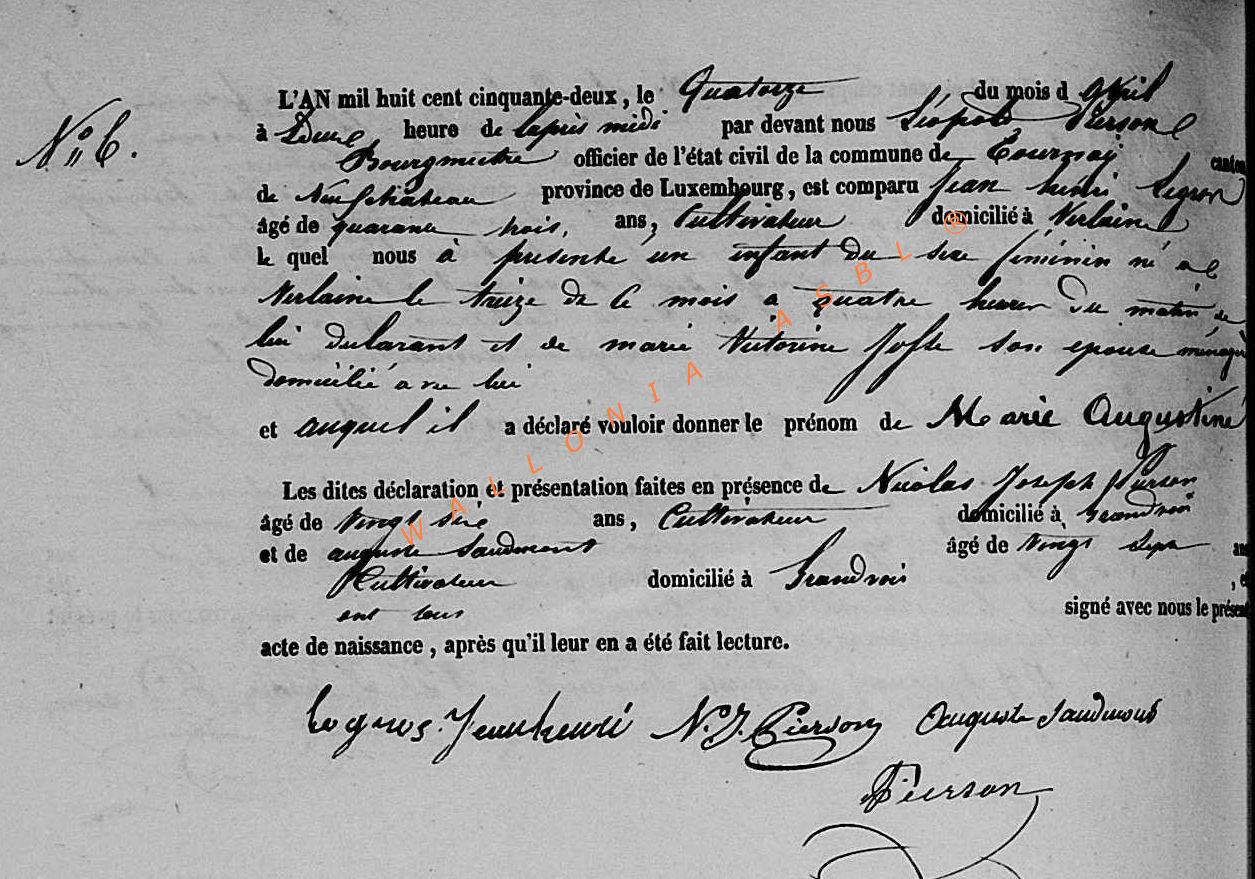 N° 6.
L'AN mil huit cent cinquante-deux, le Quatorze du mois d'Avril
à Deux heure de laprès midi par devant nous Léopold Pierson
Bourgmestre officier de l'état civil de la commune de Tournay canton
de Neufchateau province de Luxembourg, est comparu Jean henri Legros
âgé de quarante trois, ans, Cultivateur domicilié à Verlaine
le quel nous à présenté un enfant du sexe féminin né a
Verlaine le treize de ce mois a quatre heures du matin de
lui declarant et de marie Victorine son epouse ménagère
domicilié avec lui
et auquel il a déclaré vouloir donner le prénom de Marie Augustine
Les dites déclaration et présentation faites en présence de Nicolas Joseph Pierson
âgé de vingt six ans, Cultivateur domicilié à Grandvoir
et de auguste Saudmont âgé de Vingt sept ans
Cultivateur domicilié à Grandvoir
ont tous signé avec nous le présent
acte de naissance, après qu'il leur en a été fait lecture.
Legros Jean henri N. J. Pierson Auguste Saudmont
Pierson
WALLONIA ASBL ®